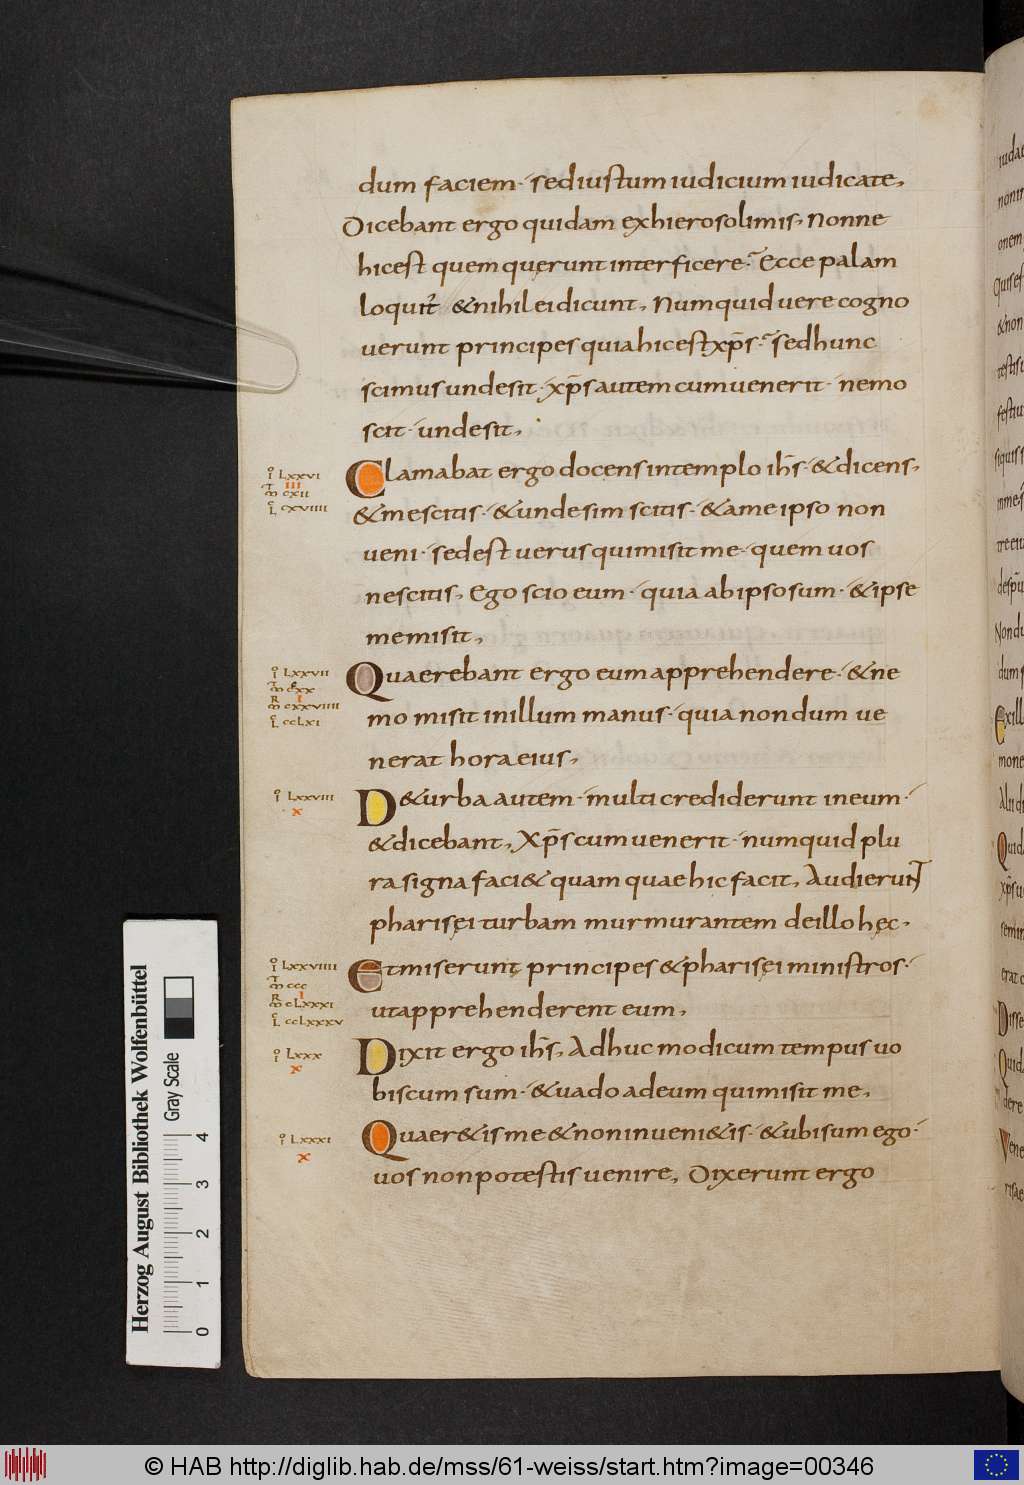 dum faciem · sed iustum iudicium iudicate,
Dicebant ergo quidam ex hierosolimis, Nonne
hic est quem querunt interficere? Ecce palam
loquitr & nihil ei dicunt, Numquid vere cogno
verunt principes quia hic est xp̄s? sed hunc
scimus unde sit · xp̄s autem cum venerit · nemo
scit · unde sit,
Clamabat ergo docens in templo ih̄s · & dicens,
& me scitis · & unde sim scitis · & a me ipso non
veni · sed est verus qui misit me · quem vos
nescitis, Ego scio eum · quia ab ipso sum · & ipse
me misit,
Quaerebant ergo eum apprehendere · & ne
mo misit in illum manus · quia nondum ve
nerat hora eius,
D& urba autem · multi crediderunt in eum ·
& dicebant, Xp̄s cum venerit · numquid plu
ra signa faci& quam quae hic facit, Audierunt
pharisęi turbam murmurantem de illo hęc,
Et miserunt principes & pharisęi ministros ·
ut apprehenderent eum,
Dixit ergo ih̄s, Adhuc modicum tempus vo
biscum sum · & vado ad eum qui misit me,
Quaer&is me & non inveni&is · & ubi sum ego ·
vos non potestis venire, Dixerunt ergo
LXXVI
III
CXII
CXVIIII
LXXVII
CXX
I
CXXVIIII
CCLXI
LXXVIII
X
LXXVIIII
CCC
I
CLXXXI
CCLXXXV
LXXX
X
LXXXI
X
Herzog August Bibliothek Wolfenbüttel
Gray Scale
0 1 2 3 4
© HAB http://diglib.hab.de/mss/61-weiss/start.htm?image=00346